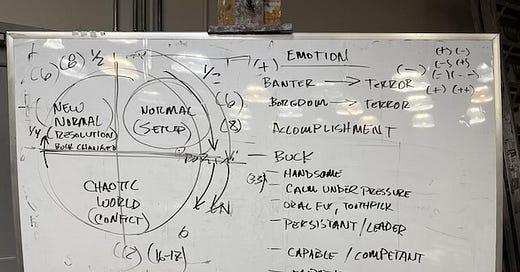 (6) (8) 1/2
1/2
(6)
(8)
NEW
NORMAL
(RESOLUTION)
BUCK CHANGED
1/4
NORMAL
(SETUP)
CHAOTIC
WORLD
(CONFLICT)
(16-17)
EMOTION
(+)
BANTER → TERROR
BORGDOM → TERROR
ACCOMPLISHMENT
(-)
(+) (-)
(-) (+)
(-) (--)
(+) (++)
- BUCK
- HANDSOME
- CALM UNDER PRESSURE
- ORAL FIX, TOOTHPICK
- PERSISTANT / LEADER
- CAPABLE / COMPETANT